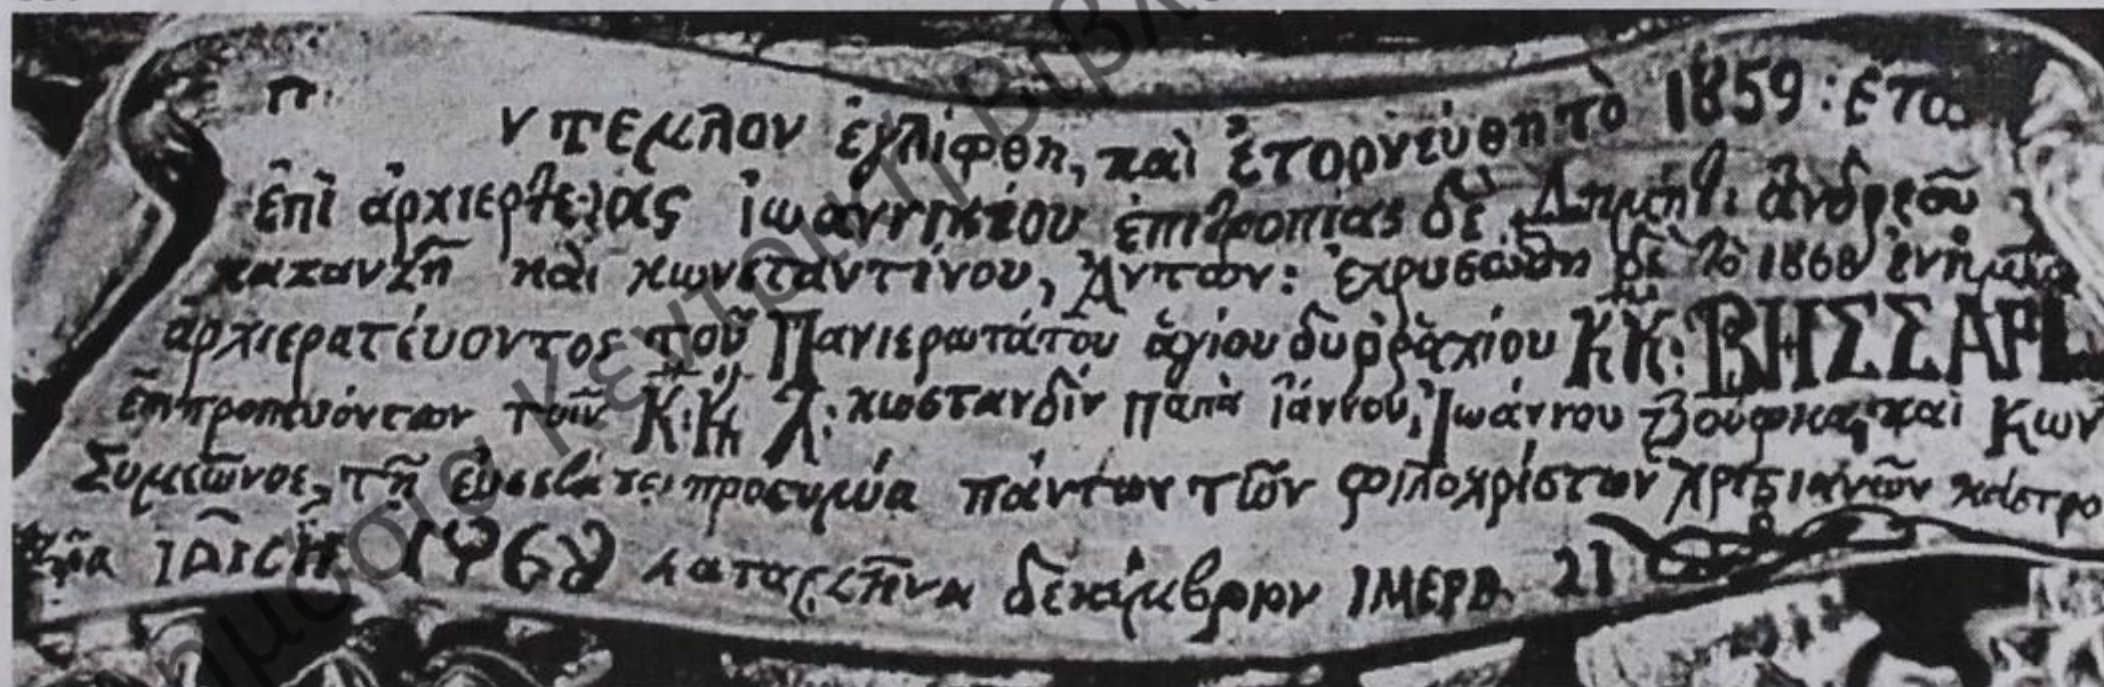 ν τεμπλον ἐγλίφθη, καὶ ἐτορνεύθη τὸ 1859: ἔτος
ἐπὶ ἀρχιερατείας ἰωαννικίου ἐπιτροπίας δὲ Δημήτ: ἀνδρέου
καζαντζῆ καὶ κωνσταντίνου, Ἀντων: ἐχρυσώθη δὲ τὸ 1868
ἀρχιερατέυοντος τοῦ Πανιερωτάτου ἁγίου δυῤῥαχίου ΚΚ: ΒΗΣΣΑΡΙ
ἐπιτροπευόντων τῶν Κ:Κ κωσταντδίν παπὰ ἰάννου, Ἰωάννου καὶ Κων
Συμεῶνος, τῇ πάντων τῶν φιλοχρίστων χριστιανῶν κάστρο
1868 κατα μῆνα δεκέμβριον ΙΜΕΡΑ 21
Δημόσια Κεντρική Βιβλ